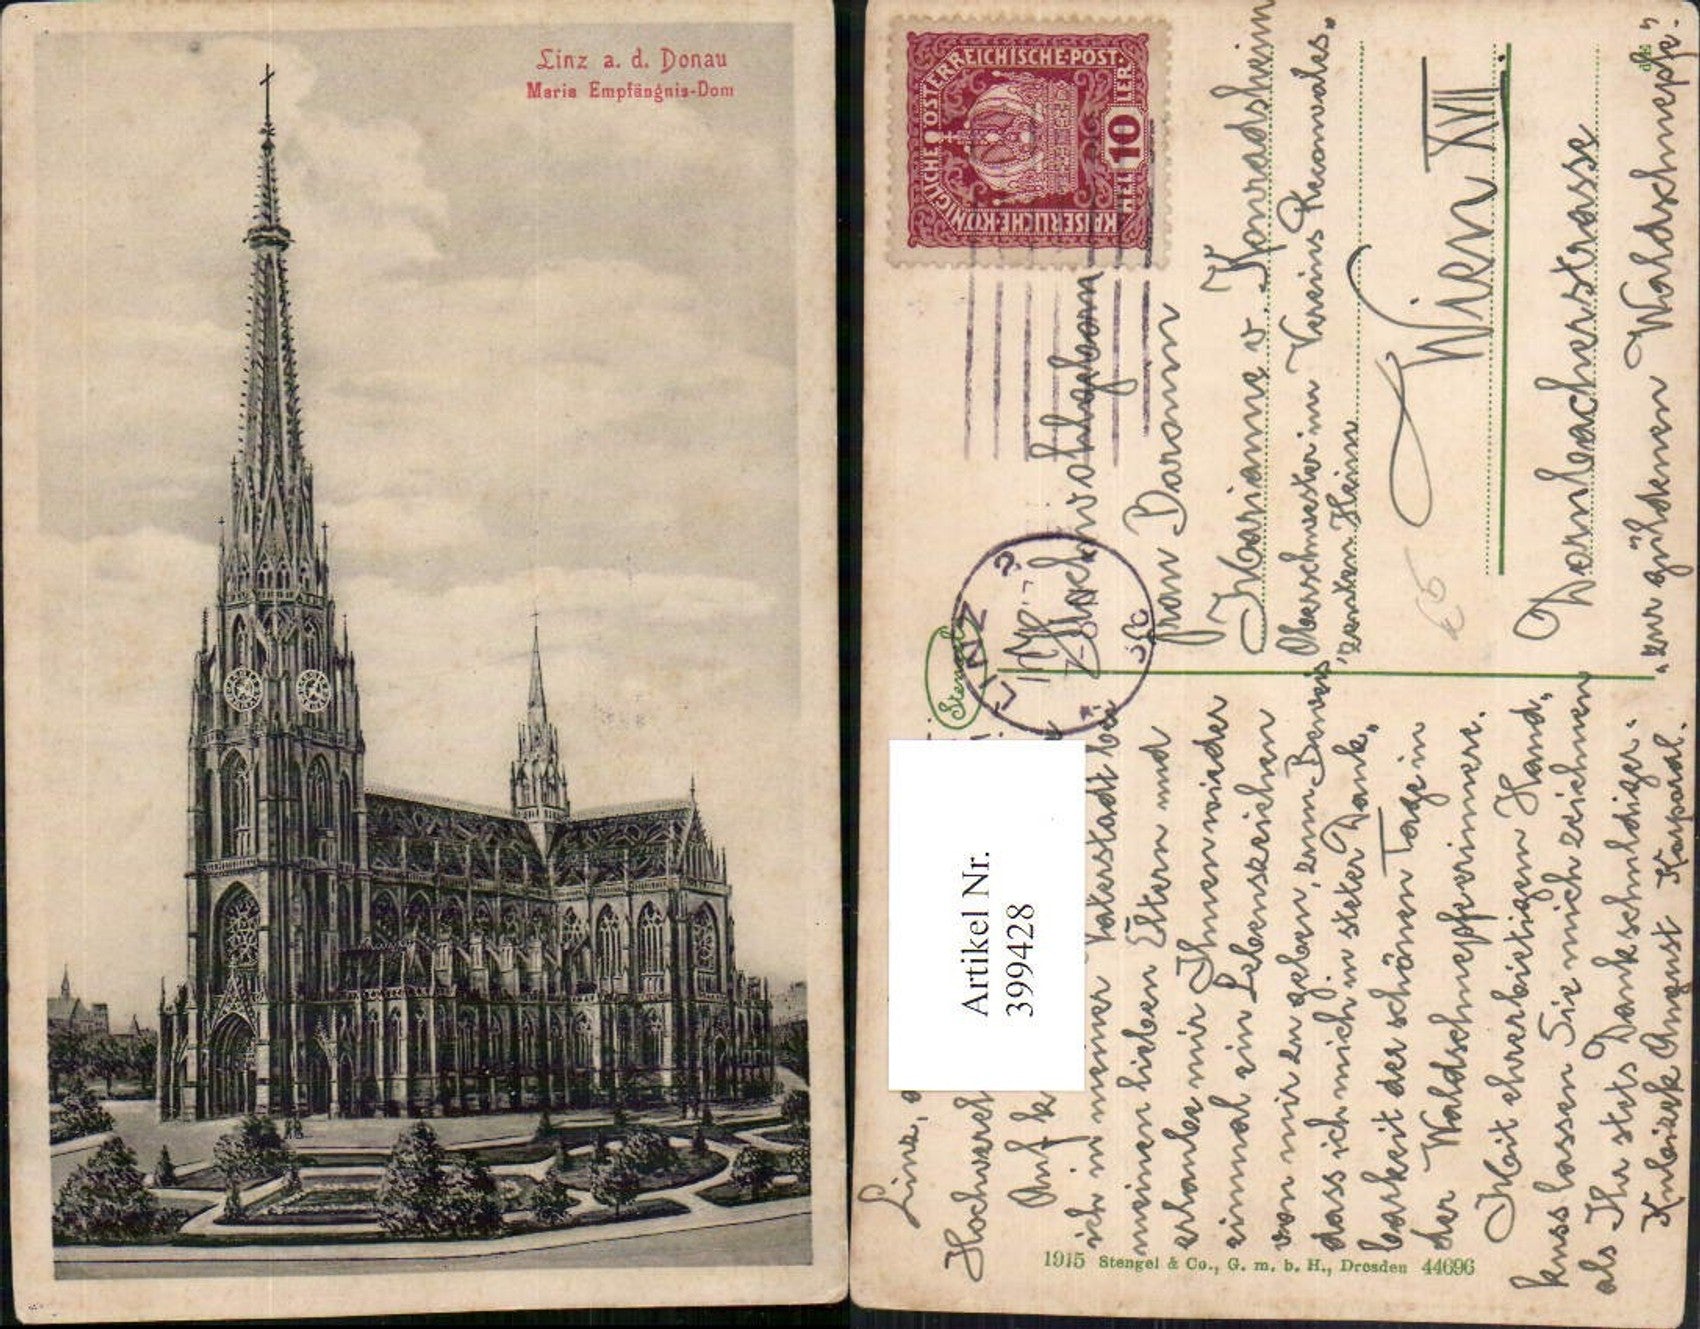 Linz a. d. Donau
Maria Empfängnis-Dom
KAISERLICHE·KÖNIGLICHE ÖSTERREICHISCHE·POST·
10
HELLER
LINZ
Stengel
Artikel Nr.
399428
Linz,
Hochvereh
Auf k
ich in meiner Vaterstadt bei
meinen lieben Eltern und
erlaube mir Ihnen wieder
einmal ein Lebenszeichen
von mir zu geben, zum Beweis
dass ich mich in steter Dank„
barkeit der schönen Tage in
der Waldschnepfe erinnere.
Mit ehrerbietigem Hand„
kuss lassen Sie mich zeichnen
als Ihr stets Dankschuldiger.
August Korporal.
Hochwohlgeborn
Frau Baronin
Marianne v. Konradsheim
Oberschwester im Vereins Rekonvales„
zenten Heim
Wien XVII.
Dornbacherstrasse
„zur güldenen Waldschnepfe".
1915 Stengel & Co., G. m. b. H., Dresden 44696